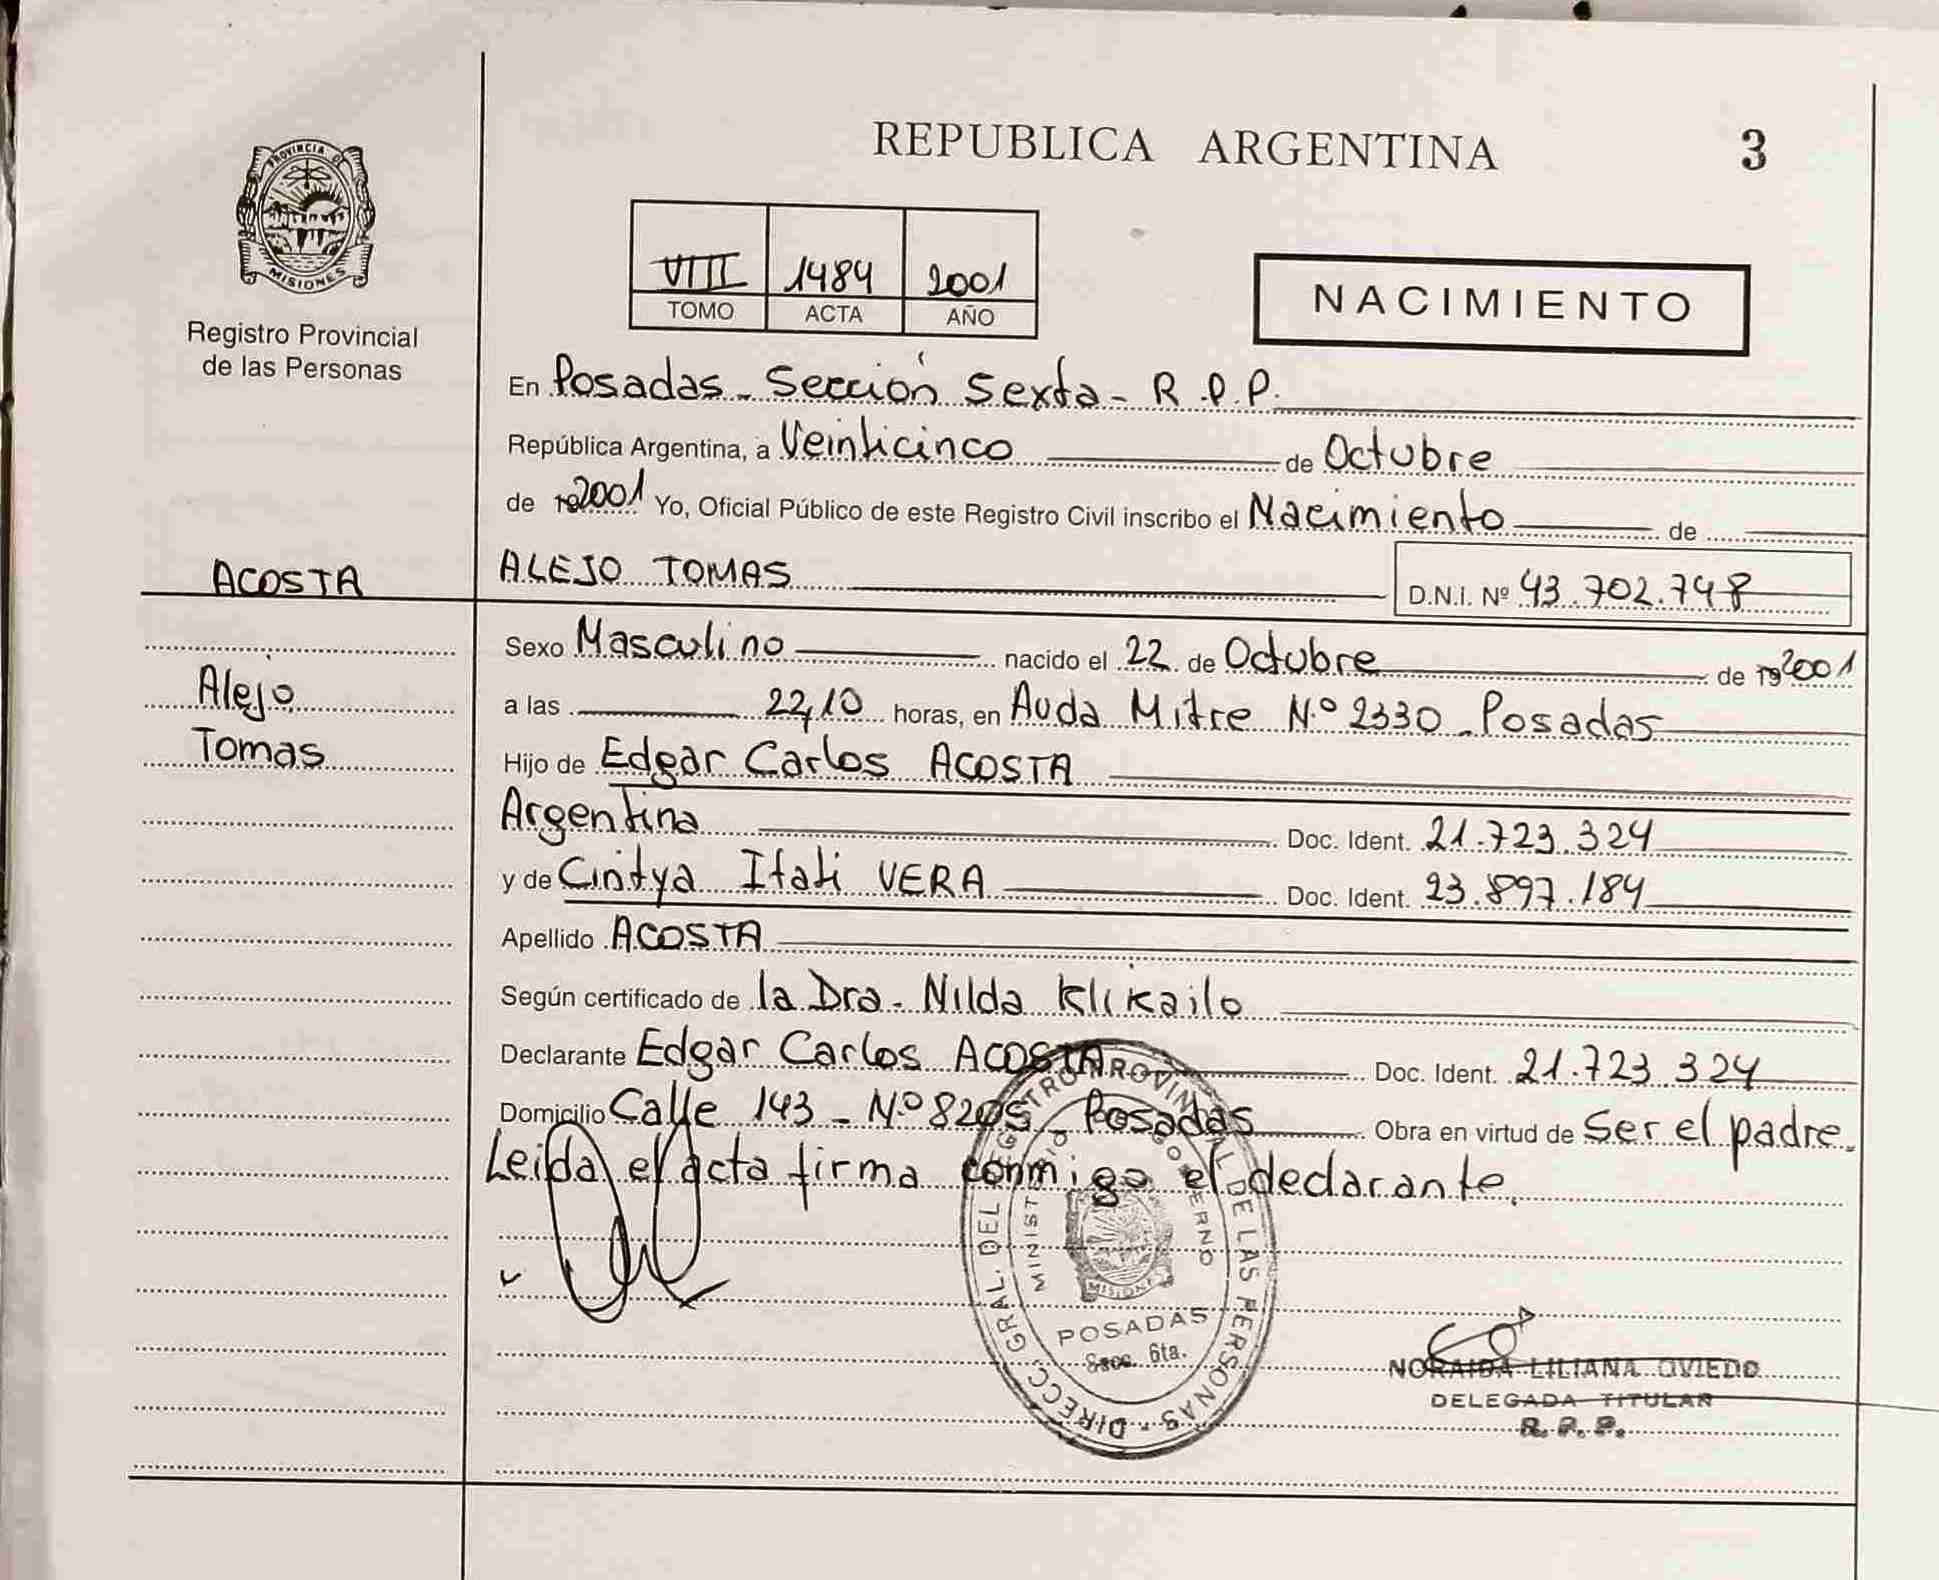 REPUBLICA ARGENTINA 3
PROVINCIA DE
MISIONES
Registro Provincial
de las Personas
VIII 1484 2001
TOMO ACTA AÑO
NACIMIENTO
En Posadas - Sección Sexta - R.P.P.
República Argentina, a Veinticinco de Octubre
de 192001 Yo, Oficial Público de este Registro Civil inscribo el Nacimiento de
ACOSTA
ALEJO TOMAS D.N.I. Nº 43.702.748
Sexo Masculino nacido el 22 de Octubre de 192001
Alejo
Tomas
a las 22,10 horas, en Avda Mitre N.º 2330 - Posadas
Hijo de Edgar Carlos ACOSTA
Argentina Doc. Ident. 21.723.324
y de Cintya Itati VERA Doc. Ident. 23.897.184
Apellido ACOSTA
Según certificado de la Dra. Nilda Klikailo
Declarante Edgar Carlos ACOSTA Doc. Ident. 21.723 324
Domicilio Calle 143 - N.º 8205 - Posadas Obra en virtud de Ser el padre.
Leida el acta firma conmigo el declarante.
DIRECC. GRAL. DEL REGISTRO PROVINCIAL DE LAS PERSONAS
MINISTERIO GOBIERNO
MISIONES
POSADAS
Secc. 6ta.
NORAIDA LILIANA OVIEDO
DELEGADA TITULAR
R.P.P.